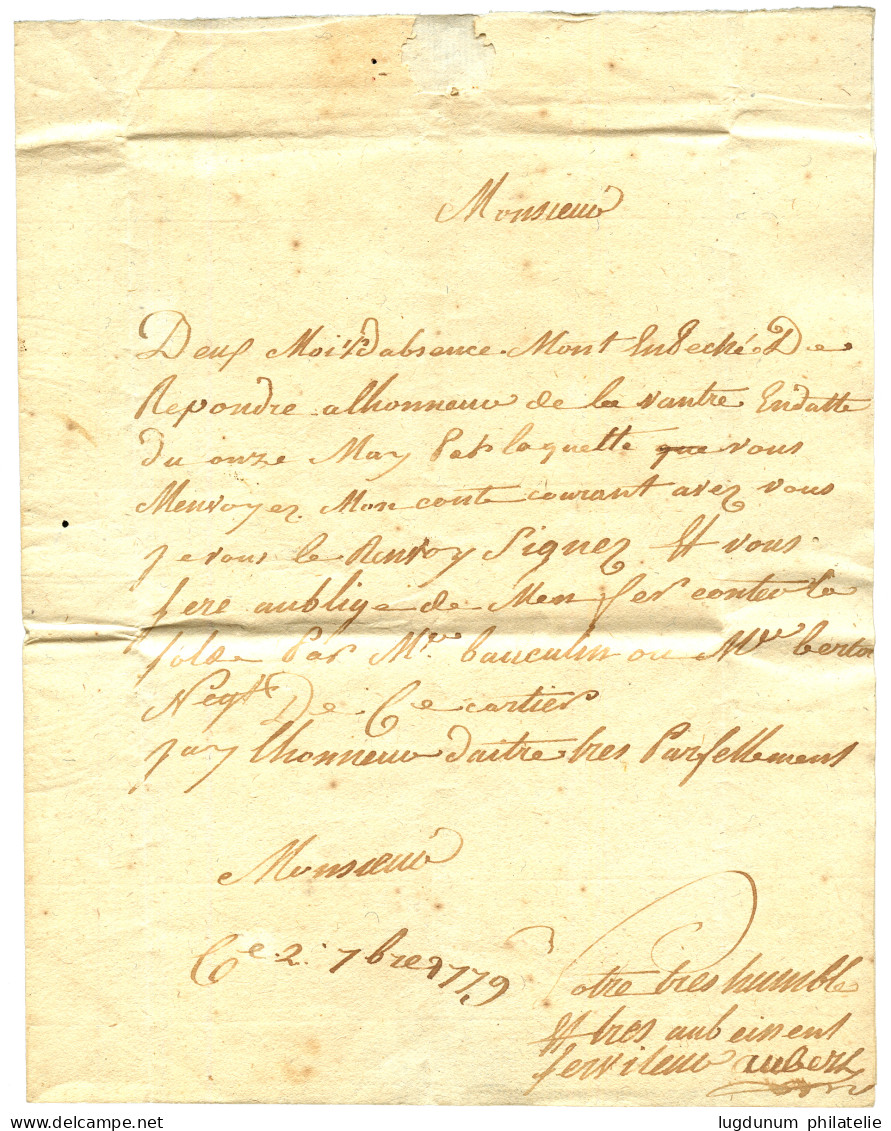 Monsieur
Deux Mois dabsence Mont Enpeché De
Repondre alhonneur de la vautre Endatte
du onze May Par laquelle que vous
Menvoyez Mon conte courant avez vous
je vous le Renvoy Signez Et vous
sere aublige de Men fer conter le
solde Par Mr. bauculin ou Mr berto
Negt De Ce cartier
jay lhonneur daitre tres Parfettement
Monsieur
Ce 2. 7bre 1779
Votre tres humble
Et tres aubeissent
serviteur aubert
lugdunum philatelie